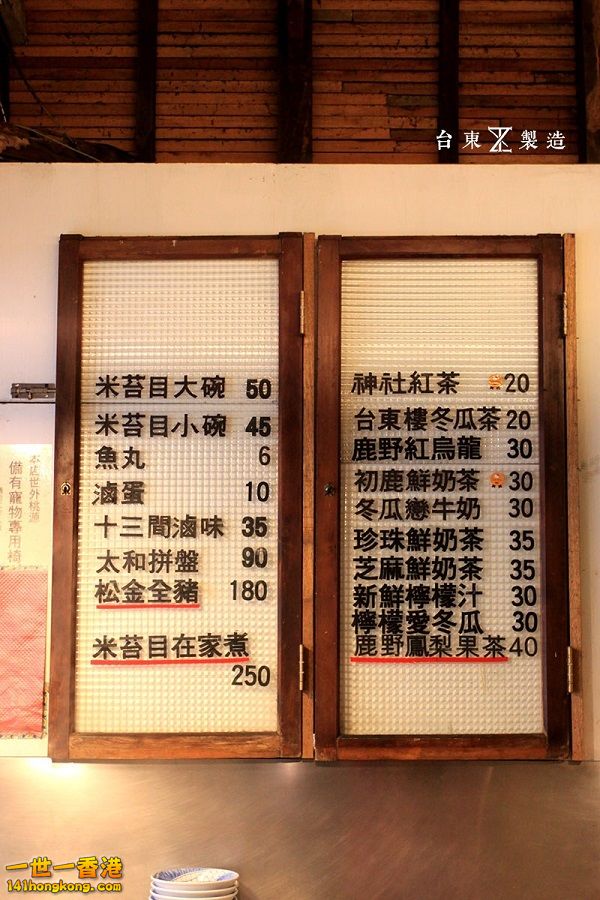 台東製造
米苔目大碗 50
米苔目小碗 45
魚丸 6
滷蛋 10
十三間滷味 35
太和拼盤 90
松金全豬 180
米苔目在家煮
250
神社紅茶 20
台東樓冬瓜茶 20
鹿野紅烏龍 30
初鹿鮮奶茶 30
冬瓜戀牛奶 30
珍珠鮮奶茶 35
芝麻鮮奶茶 35
新鮮檸檬汁 30
檸檬愛冬瓜 30
鹿野鳳梨果茶 40
本店世外桃源
備有寵物專用椅
一世一香港
141hongkong.com